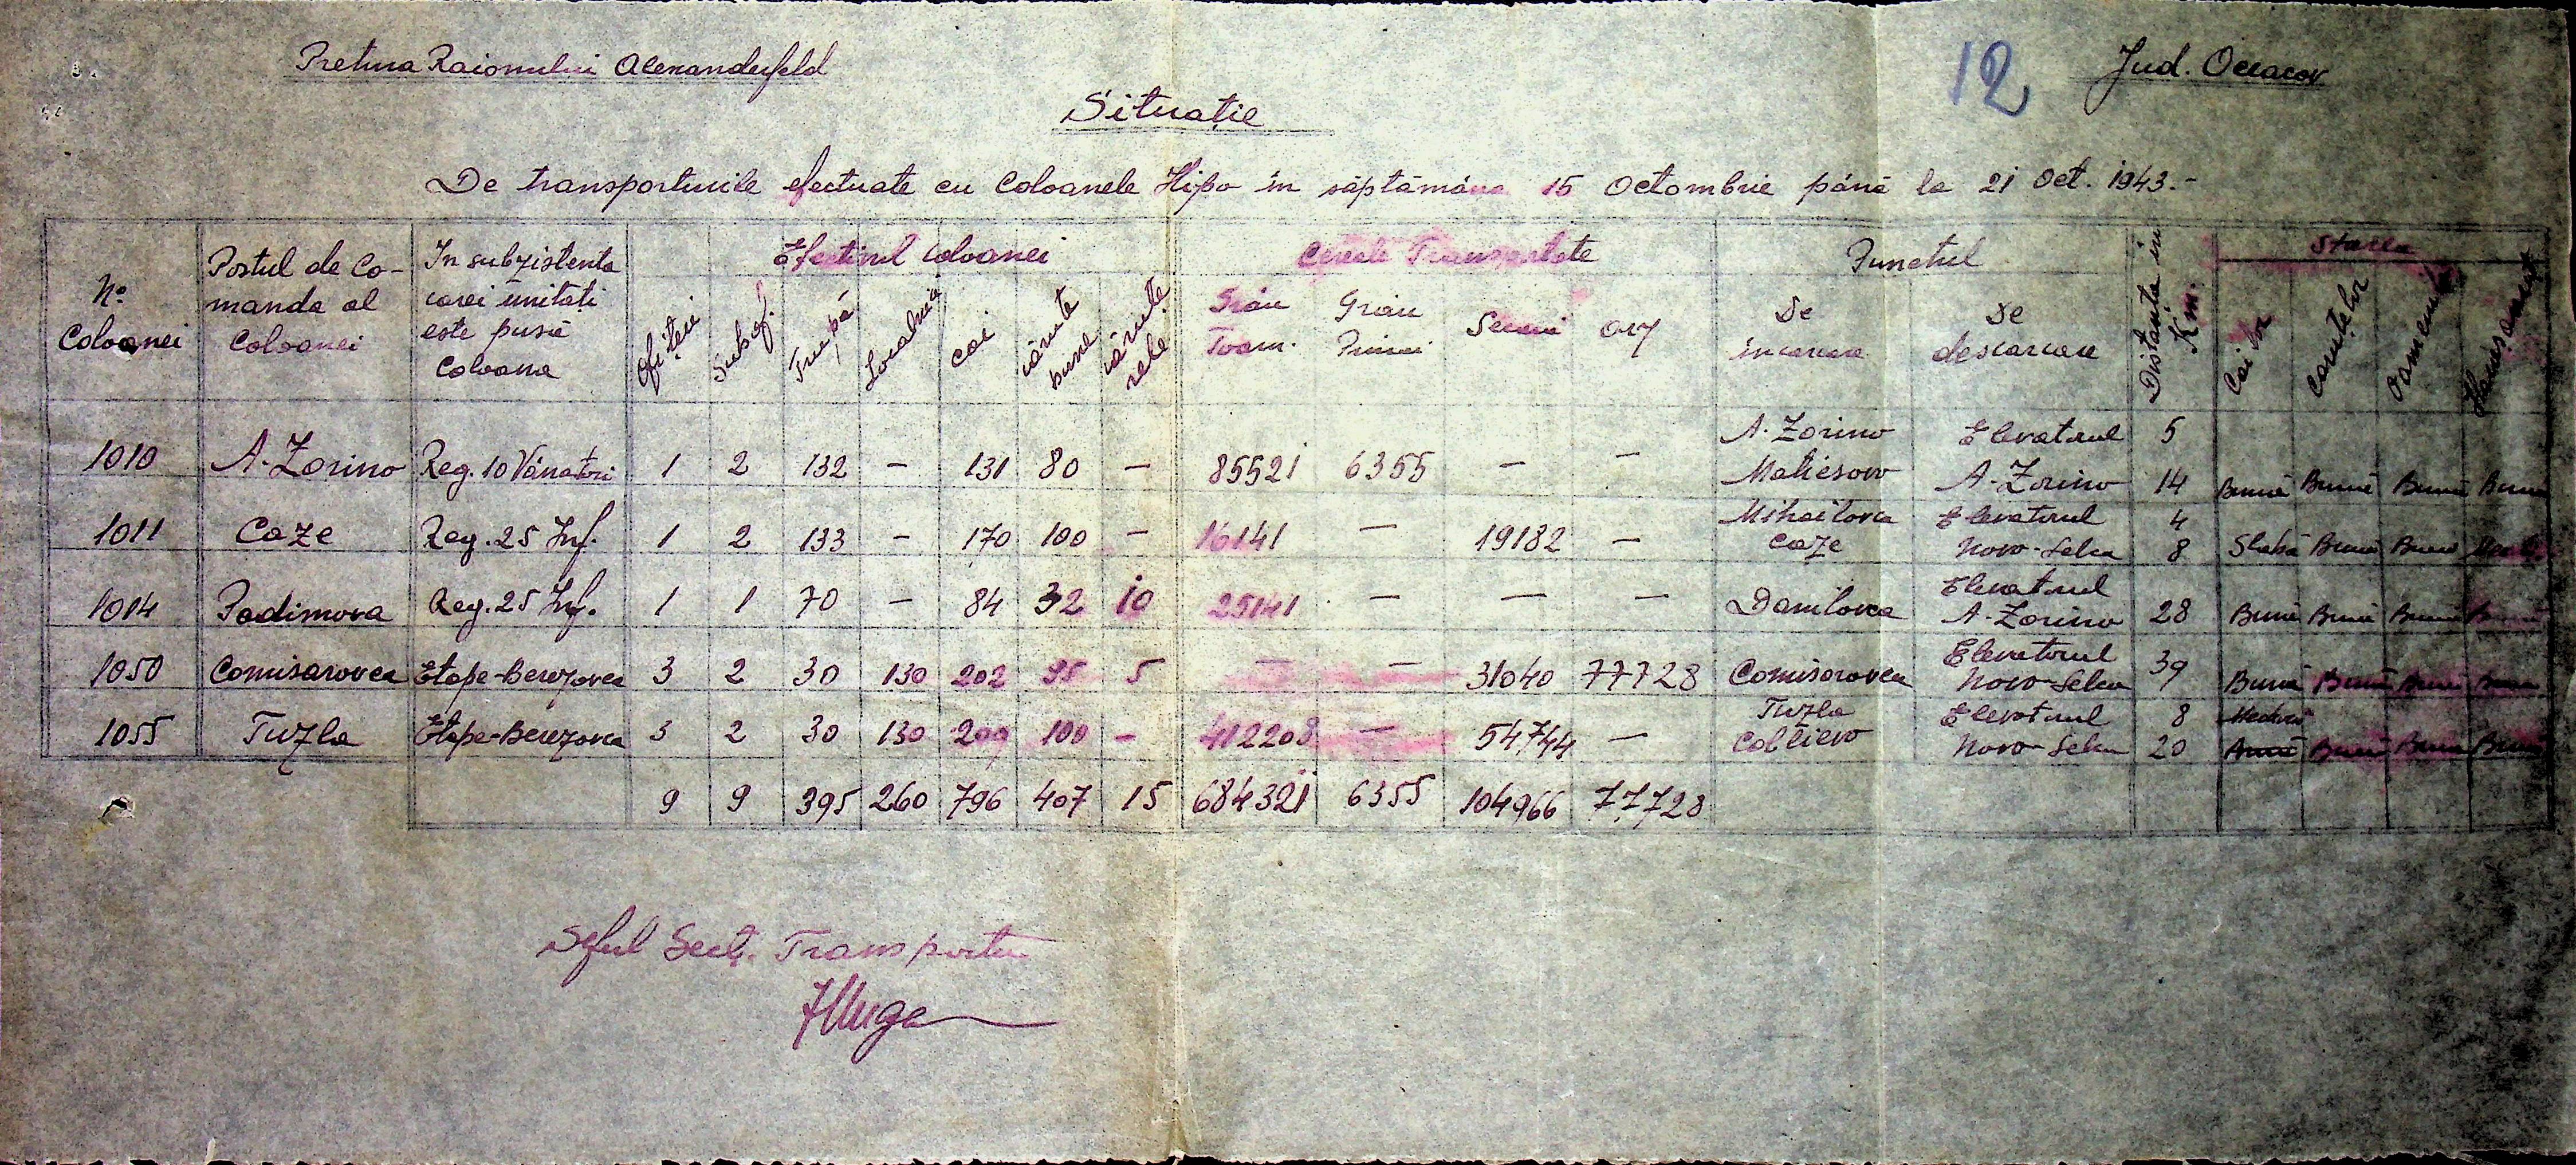 Pretura Raionului Alexanderfeld
12
Jud. Oceacov
Situație
De transporturile efectuate cu Coloanele Hipo în săptămâna 15 Octombrie până la 21 Oct. 1943.-
No Coloanei | Postul de Comanda al Coloanei | In subzistenta carei unitati este pusă Coloana | Efectivul Coloanei | Cereale Transportate | Punctul | Distanța in Km. | Starea
Ofițeri | Subof. | Trupă | Localnici | cai | căruțe bune | căruțe rele | Grâu Toam. | Grâu Primăv. | Secară | Orz | De incarcare | De descarcare | Cailor | Caruțelor | Oamenilor
1010 | A-Zorino | Reg. 10 Vânatori | 1 | 2 | 132 | — | 131 | 80 | — | 85521 | 6355 | — | — | A-Zorino Matiesovo | Elevatorul A-Zorino | 5 14 | Bună | Bună | Bună | Bună
1011 | Caze | Reg. 25 Inf. | 1 | 2 | 133 | — | 170 | 100 | — | 16141 | — | 19182 | — | Mihailovca Caze | Elevatorul Novo-Selca | 4 8 | Slabă | Bună | Bună
1014 | Padimova | Reg. 25 Inf. | 1 | 1 | 70 | — | 84 | 32 | 10 | 25141 | — | — | — | Danilovca | Elevatorul A-Zorino | 28 | Bună | Bună | Bună
1050 | Comisarovca | Etape-Berezovca | 3 | 2 | 30 | 130 | 202 | 95 | 5 | — | — | 31040 | 77728 | Comisarovca | Elevatorul Novo-Selca | 39 | Bună | Bună | Bună | Bună
1055 | Tuzla | Etape-Berezovca | 3 | 2 | 30 | 130 | 209 | 100 | — | 412208 | — | 54744 | — | Tuzla Coblievo | Elevatorul Novo-Selca | 8 20 | Bună | Bună | Bună
9 | 9 | 395 | 260 | 796 | 407 | 15 | 684321 | 6355 | 104966 | 77728
Șeful Secț. Transportu